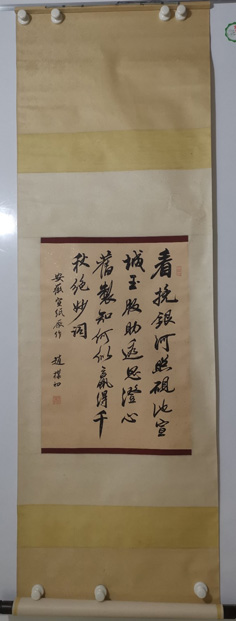 看挽银河照砚池宣
城玉版助遐思澄心
旧制知何似赢得千
秋绝妙词
安徽宣纸厂作
赵朴初